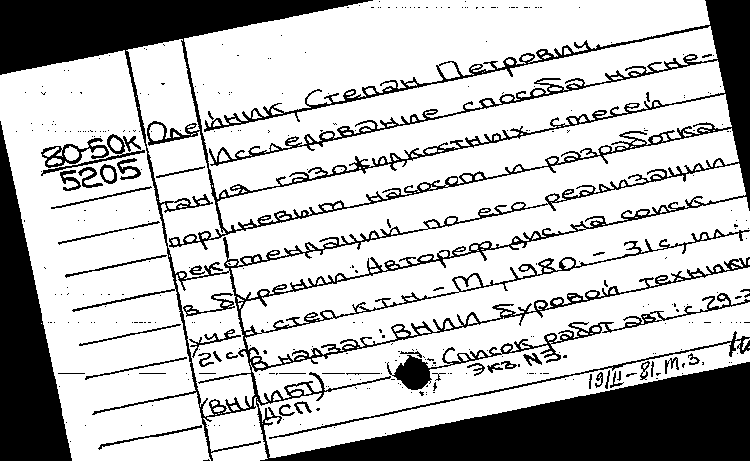 80-50к
5205
Олейник, Степан Петрович.
Исследование способа нагне-
тания газожидкостных смесей
поршневым насосом и разработка
рекомендаций по его реализации
в бурении: Автореф. дис. на соиск.
учен. степ. к.т.н. - М., 1980. - 31 с., ил.;
21 см.
В надзаг.: ВНИИ буровой техники
(ВНИИБТ)
Список работ авт.: с. 29-3
Экз. N3.
ДСП.
19/II-81. М.З.